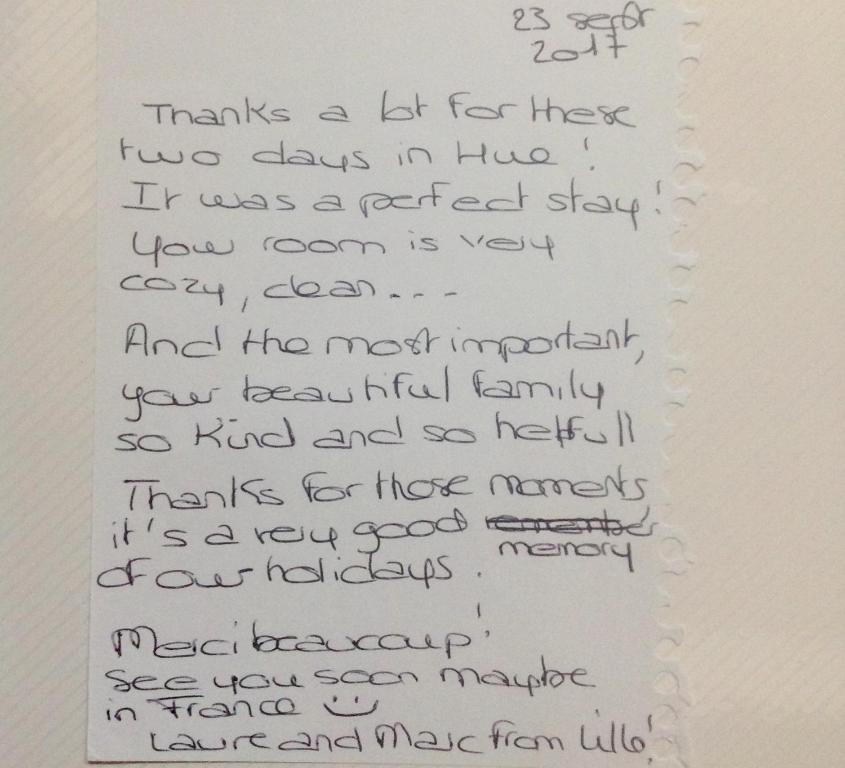 23 septbr
2017
Thanks a lot for these
two days in Hue !
It was a perfect stay !
Your room is very
cozy, clean...-
And the most important,
your beautiful family
so kind and so helpfull
Thanks for those moments
it's a very good remember
memory
of our holidays.
Merci beaucoup !
See you soon maybe
in France
Laure and Marc from Lille !